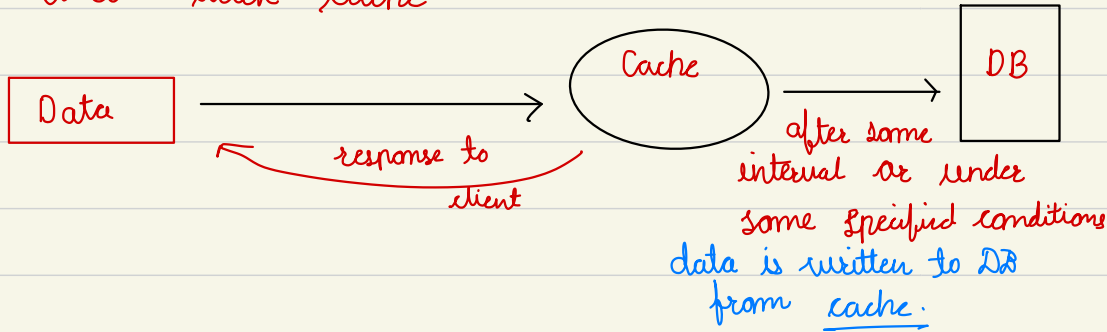 back cache
Cache
DB
Data
response to
client
after some
interval or under
some specified conditions
data is written to DB
from cache.